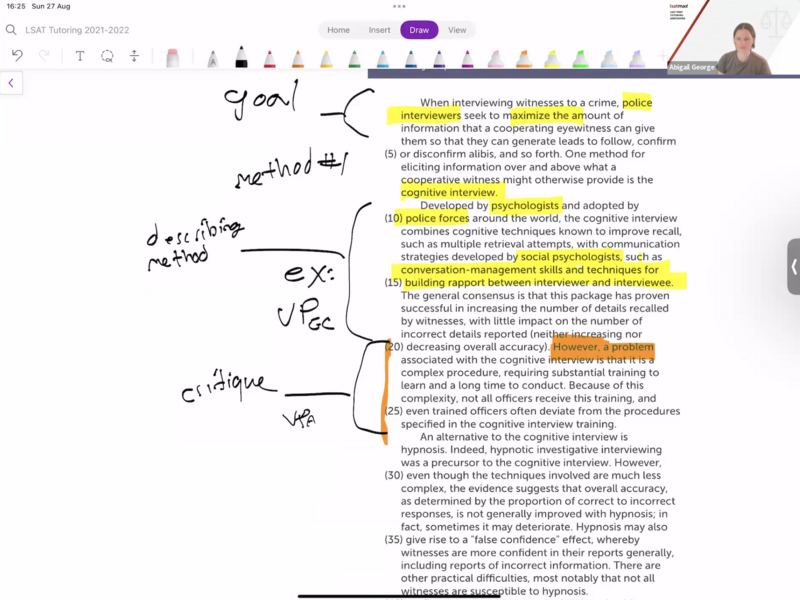 16:25 Sun 27 Aug
LSAT Tutoring 2021-2022
Home Insert Draw View
Abigail George
goal
method #1
describing
method
ex:
VPGC
critique
VPA
When interviewing witnesses to a crime, police
interviewers seek to maximize the amount of
information that a cooperating eyewitness can give
them so that they can generate leads to follow, confirm
(5) or disconfirm alibis, and so forth. One method for
eliciting information over and above what a
cooperative witness might otherwise provide is the
cognitive interview.
Developed by psychologists and adopted by
(10) police forces around the world, the cognitive interview
combines cognitive techniques known to improve recall,
such as multiple retrieval attempts, with communication
strategies developed by social psychologists, such as
conversation-management skills and techniques for
(15) building rapport between interviewer and interviewee.
The general consensus is that this package has proven
successful in increasing the number of details recalled
by witnesses, with little impact on the number of
incorrect details reported (neither increasing nor
(20) decreasing overall accuracy). However, a problem
associated with the cognitive interview is that it is a
complex procedure, requiring substantial training to
learn and a long time to conduct. Because of this
complexity, not all officers receive this training, and
(25) even trained officers often deviate from the procedures
specified in the cognitive interview training.
An alternative to the cognitive interview is
hypnosis. Indeed, hypnotic investigative interviewing
was a precursor to the cognitive interview. However,
(30) even though the techniques involved are much less
complex, the evidence suggests that overall accuracy,
as determined by the proportion of correct to incorrect
responses, is not generally improved with hypnosis; in
fact, sometimes it may deteriorate. Hypnosis may also
(35) give rise to a "false confidence" effect, whereby
witnesses are more confident in their reports generally,
including reports of incorrect information. There are
other practical difficulties, most notably that not all
witnesses are susceptible to hypnosis.